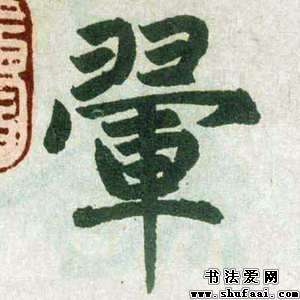 翬
书法爱网
www.shufaai.com